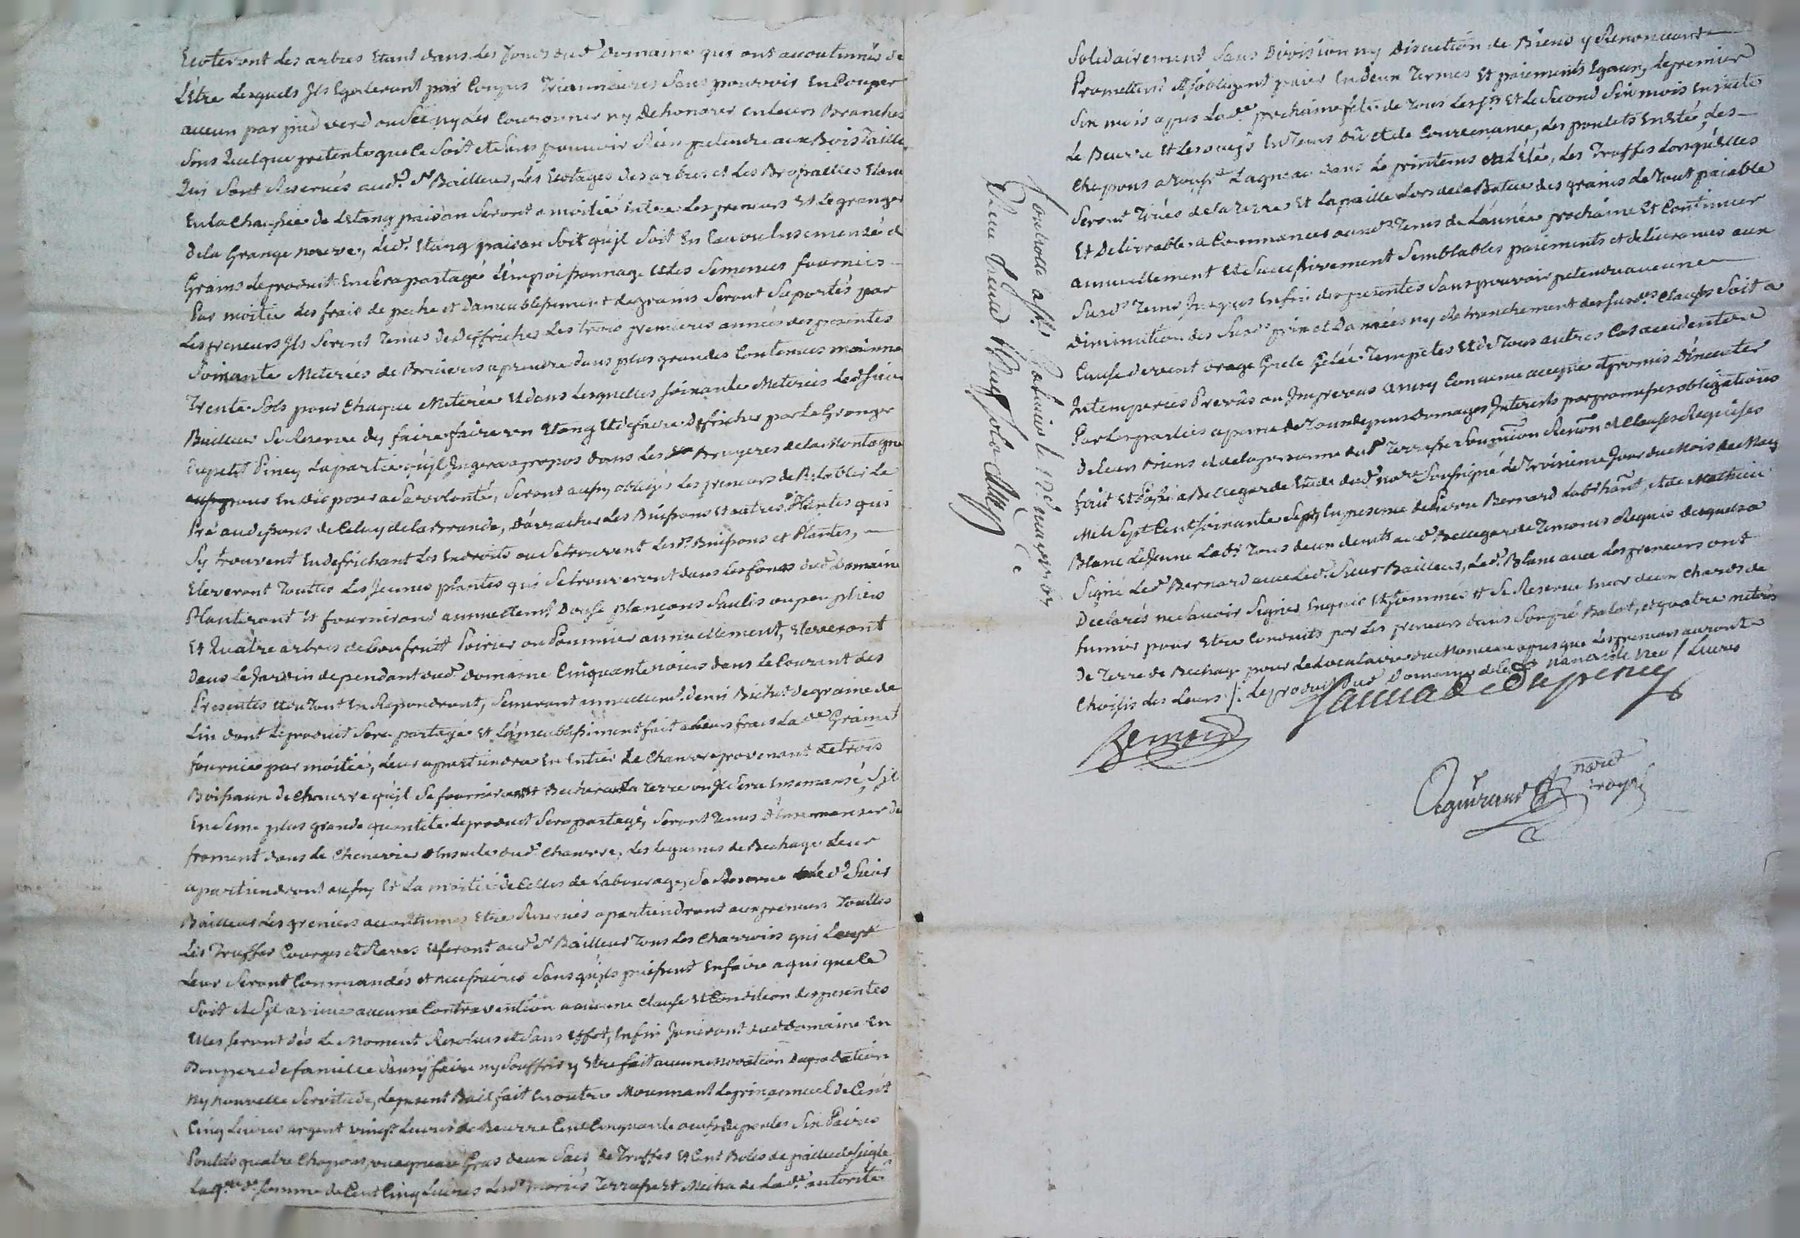 Ecoteront les arbres Etant dans les fonds dud. Domaine qui ont accoutumés de
L'être lesquels Ils Egaleront par Coupes Triennaires Sans pouvoir En Couper
aucun par pied verd ou Sec ny les Couronner ny Dehonorer En leurs Branches
Sous quelque pretexte que ce Soit et Sans pouvoir Rien pretendre aux Bois Taillis
Qui Sont Reservés aud. Sr. Bailleur, Les Ecotages des arbres et les Bropallies Etant
En la Chaussée de L'etang paisan Seront a moitié Entre Les preneurs Et Le granger
de la Grange neuve, Led. Etang paisan Soit qu'il Soit En Eau ou Ensemensé de
Grains Le produit En Sera partagé L'empoissonnage et les Semences fournies
Par moitié des frais de peche et d'ameublissement de grains Seront Suportés par
Les preneurs Ils Seront Tenus de Deffricher Les trois premieres années des presentes
Soixante Meterées de Bruieres a prendre dans plus grandes Contenues moiennant
Trente Sols pour Chaque Meterée Et dans Lesquelles Soixante Meterées Led. Sieur
Bailleur Se Reserve d'y faire faire un Etang Et de faire defricher par Le Granger
Du petit Piney La partie qu'il Jugera a propos dans Les Bruyeres de la Montagne
En disposer a Sa volonté, Seront aussy obligés Les preneurs de Retablir Le
Pré au dessous de Celuy de la Brande, D'arracher Les Buissons Et autres Plantes qui
Sy trouvent En defrichant Les Endroits ou Se trouvent Lesd. Buissons et Plantes,
Eleveront Toutes Les Jeunes plantes qui Se trouveront dans Les fonds dud. Domaine
Planteront Et fourniront annuellemt. Douse plançons Saules ou peupliers
Et Quatre arbres de bon fruit Poirier ou Pommier annuellement, Eleveront
Dans Le Jardin dependant dud. domaine Cinquante noiers dans le Courant des
Presentes Et du Tout En Repondront, Semeront annuellemt. demi Bichet de graine de
Lin dont Le produit Sera partagé Et L'ameublissiment fait a Leurs frais Lad. Graine
fournie par moitié, Leur apartiendra En Entier Le Chanvre provenant de trois
Boisseaux de Chanvre qu'il Se fourniront Et Becheront La Terre ou Il Sera Ensemensé, S'il
En Seme plus grande quantité Le produit Sera partagé, Seront Tenus D'ensemenser de
froment dans Le Chenevier Ensuite dud. Chanvre, Les legumes de Bechage Leur
apartiendront aussy Et La moitié de Celles de Labourage, Se Reserve Led. Sieur
Bailleur Les greniers accoutumés Etre Reservés apartiendront aux preneurs Toutes
Les Truffes Courges et Raves Et feront aud. Sr. Bailleur Tous Les Charrois qui
Leur Seront Commandés et necessaires Sans qu'ils puissent En faire a qui que Ce
Soit Et S'il arrive aucune Contravention a aucune Clause Et Condition des presentes
Elles Seront dès Le Moment Resolues et Sans Effet, Enfin Jouiront dud. domaine En
Bon pere de famille Sans y faire ny Souffrir y Etre fait aucune Novation Degradation
Ny nouvelle Servitude, Le present Bail fait En outre Moiennant Le prix annuel de Cent
Cinq Livres argent vingt Livres de Beurre Cent Cinquante oeufs de poules Six Paires
Poulets quatre Chapons, un agneau Gras deux Sacs de Truffes Et Cent Boles de paille de Seigle
Laqle. somme de Cent Cinq Livres Lesd. mariés Terrasse Et Micha de Lad. autorité
Solidairement Sans Division ny Discution de Biens y Renonceant
Promettent Et S'obligent paier En deux Termes Et paiements Egaux, Le premier
Six mois apres Lad. prochaine fête de Tous Les Sts. Et Le Second Six mois Ensuite
Le Beurre Et Les oeufs En Tems Dû et de Convenance, Les poulets En Eté, Les
Chapons a Toussts. L'agneau dans Le printems et L'Eté, Les Truffes Lorsqu'Elles
Seront Tirées de la Terre Et La paille Lors de la Batue des grains Le Tout paiable
Et Delivrable a Commencer aud. Tems de L'année prochaine Et Continuer
annuellement Et Successivement Semblables paiements et delivrances aux
Susd. Tems Jusques En fin des presentes Sans pouvoir pretendre aucune
Diminution des Susd. prix et Danrées ny Retranchement des susd. Clauses Soit a
Cause de vent orage Grele Gelée Tempetes Et de Tous autres Cas accidents Et
Intemperies Prevûs ou Imprevus Ainsy Convenu accepté et promis D'executer
Par Les parties a peine de Tous depens Dommages Interets par promesses obligations
De leurs Biens et de la personne dud. Terrasse Soumion Renon. Et Clauses Requises
fait Et Passé a Bellegarde Etude dud. nore. Soussigné Le Treisieme Jour du Mois de May
Mil Sept Cent Soixante Sept En presence de Pierre Bernard Labr. hant. et de Mathieu
Blanc Le Jeune Labr. Tous deux demts. aud. Bellegarde Temoins Requis Desquels a
Signé Led. Bernard avec Led. Sieur Bailleur, Led. Blanc avec Les preneurs ont
Declarés ne Sçavoir Signer Enquis Et Sommés Et Se Reserve Encor deux Chards de
fumier pour Etre Conduits par Les preneurs dans Son pré Balat, et quatre meterées
De Terre de Bechage pour Le Locataire du Monceau apres que Les preneurs auront
Choisis des Leurs
Bernard
Nore
Royal
Controllé a